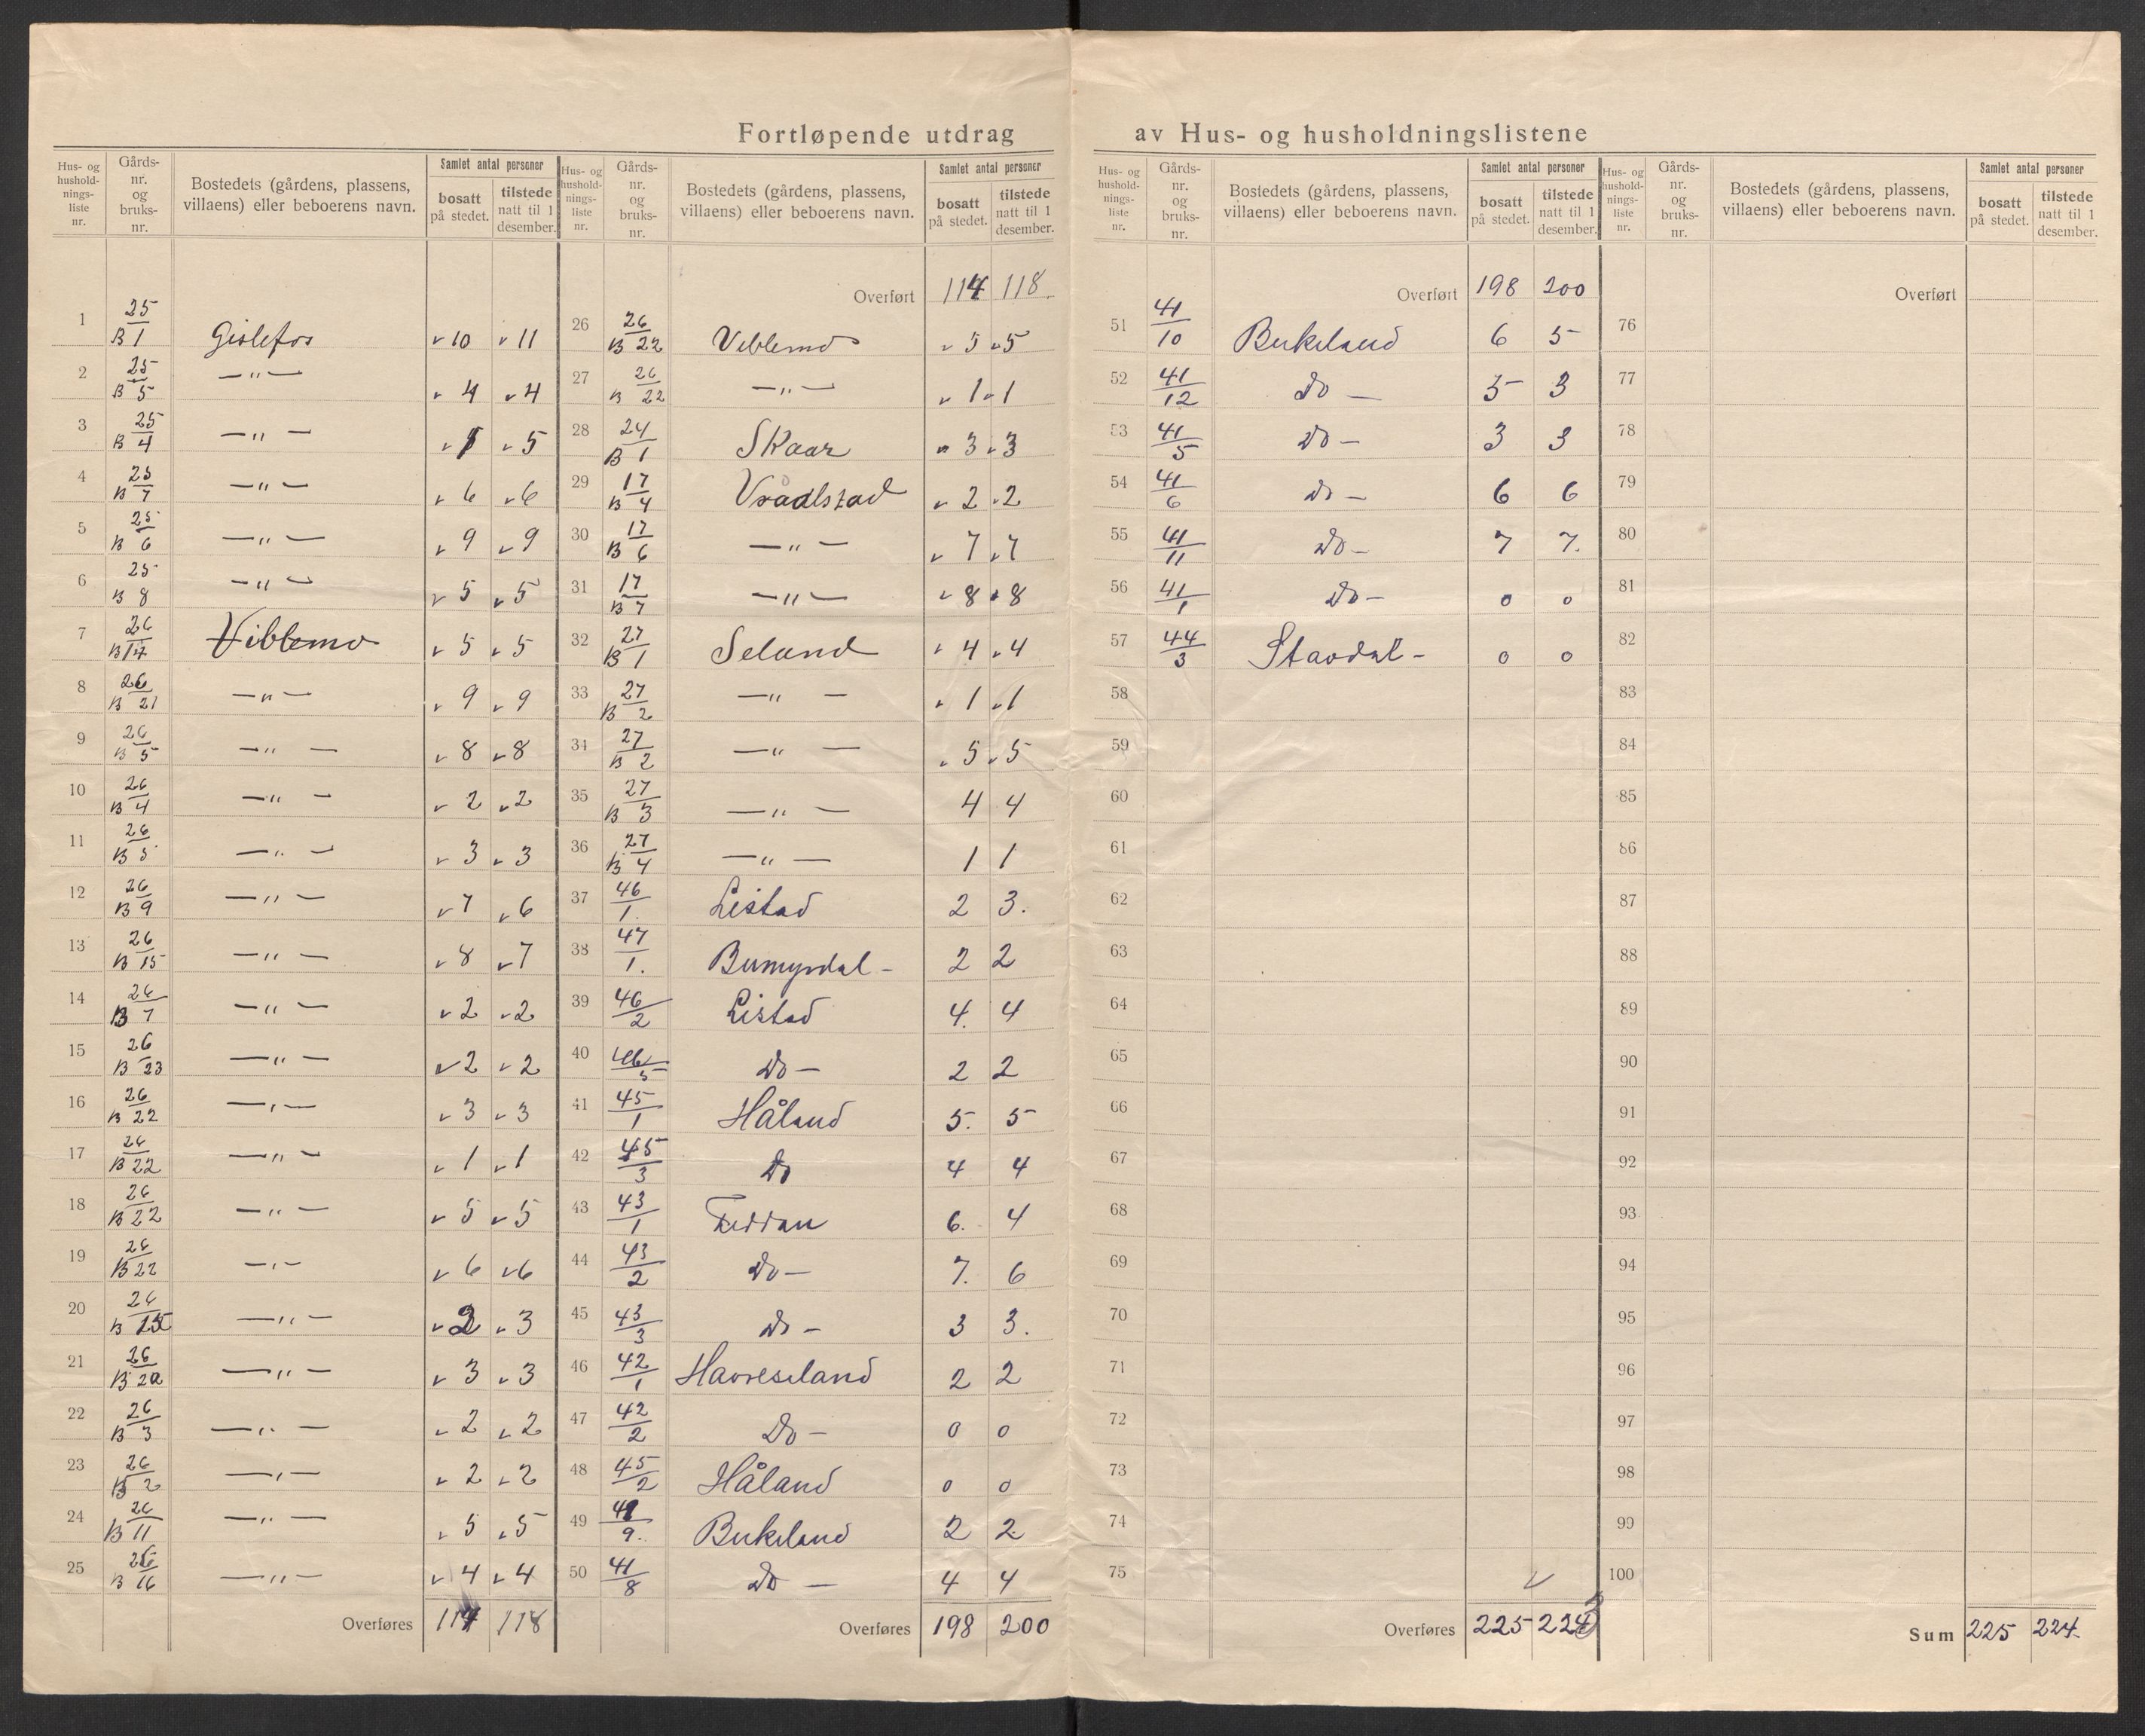 Fortløpende utdrag av Hus- og husholdningslistene
Hus- og hushold-nings-liste nr. | Gårds-nr. og bruks-nr. | Bostedets (gårdens, plassens, villaens) eller beboerens navn. | Samlet antal personer | bosatt på stedet. | tilstede natt til 1 desember.
1 25/B 1 Gislefos 10 11
2 25/B 5 —"— 4 4
3 25/B 4 —"— 5
4 25/B 7 —"— 6 6
5 25/B 6 —"— 9 9
6 25 B 8 —"— 5 5
7 26/B 14 Viblemo 5 5
8 26/B 21 —"— 9 9
9 26/B 5 —"— 8 8
10 26/B 4 —"— 2 2
11 26/B 5 —"— 3 3
12 26/B 9 —"— 7 6
13 26/B 15 —"— 8 7
14 26/B 7 —"— 2 2
15 26/B 23 —"— 2 2
16 26/B 22 —"— 3 3
17 26/B 22 —"— 1 1
18 26/B 22 —"— 5 5
19 26/B 22 —"— 6 6
20 26/B —"— 2 3
21 26/B 20 —"— 3 3
22 26/B 3 —"— 2 2
23 26/B 2 —"— 2 2
24 26/B 11 —"— 5 5
25 26/B 16 —"— 4 4
Overføres 114 118
Hus- og hushold-nings-liste nr. | Gårds-nr. og bruks-nr. | Bostedets (gårdens, plassens, villaens) eller beboerens navn. | Samlet antal personer | bosatt på stedet. | tilstede natt til 1 desember.
Overført 114 118.
26 26/B 22 Viblemo 5 5
27 26/B 22 —"— 1 1
28 24/B 1 Skaar 3 3
29 17/B 4 Vraalstad 2 2
30 17/B 6 —"— 7 7
31 17/B 7 —"— 8 8
32 27/B 1 Seland 4 4
33 27/B 2 —"— 1 1
34 27/B 2 —"— 5 5
35 27/B 3 —"— 4 4
36 27/B 4 —"— 1 1
37 46/1. Listad 2 3.
38 47/1. Bumyrdal - 2 2
39 46/2 Listad 4. 4
40 46/5 Do — 2 2
41 45/1 Håland 5. 5
42 45/3 Do 4 4
43 43/1 Feddan 6. 4
44 43/2 Do — 7. 6
45 43/3 Do - 3 3.
46 42/1 Havreseland 2 2
47 42/2 Do - 0 0
48 45/2 Håland 0 0
49 41/9. Birkeland 2 2
50 41/8 Do — 4 4
Overføres 198 200
Hus- og hushold-nings-liste nr. | Gårds-nr. og bruks-nr. | Bostedets (gårdens, plassens, villaens) eller beboerens navn. | Samlet antal personer | bosatt på stedet. | tilstede natt til 1 desember.
Overført 198 200
51 41/10 Birkeland 6 5
52 41/12 Do — 5 3
53 41/5 Do - 3 3
54 41/6 Do - 6 6
55 41/11 Do - 7 7.
56 41/1 Do - 0 0
57 44/3 Stavdal - 0 0
58
59
60
61
62
63
64
65
66
67
68
69
70
71
72
73
74
75
Overføres 225 224
Hus- og hushold-nings-liste nr. | Gårds-nr. og bruks-nr. | Bostedets (gårdens, plassens, villaens) eller beboerens navn. | Samlet antal personer | bosatt på stedet. | tilstede natt til 1 desember.
Overført
76
77
78
79
80
81
82
83
84
85
86
87
88
89
90
91
92
93
94
95
96
97
98
99
100
Sum 225 224.